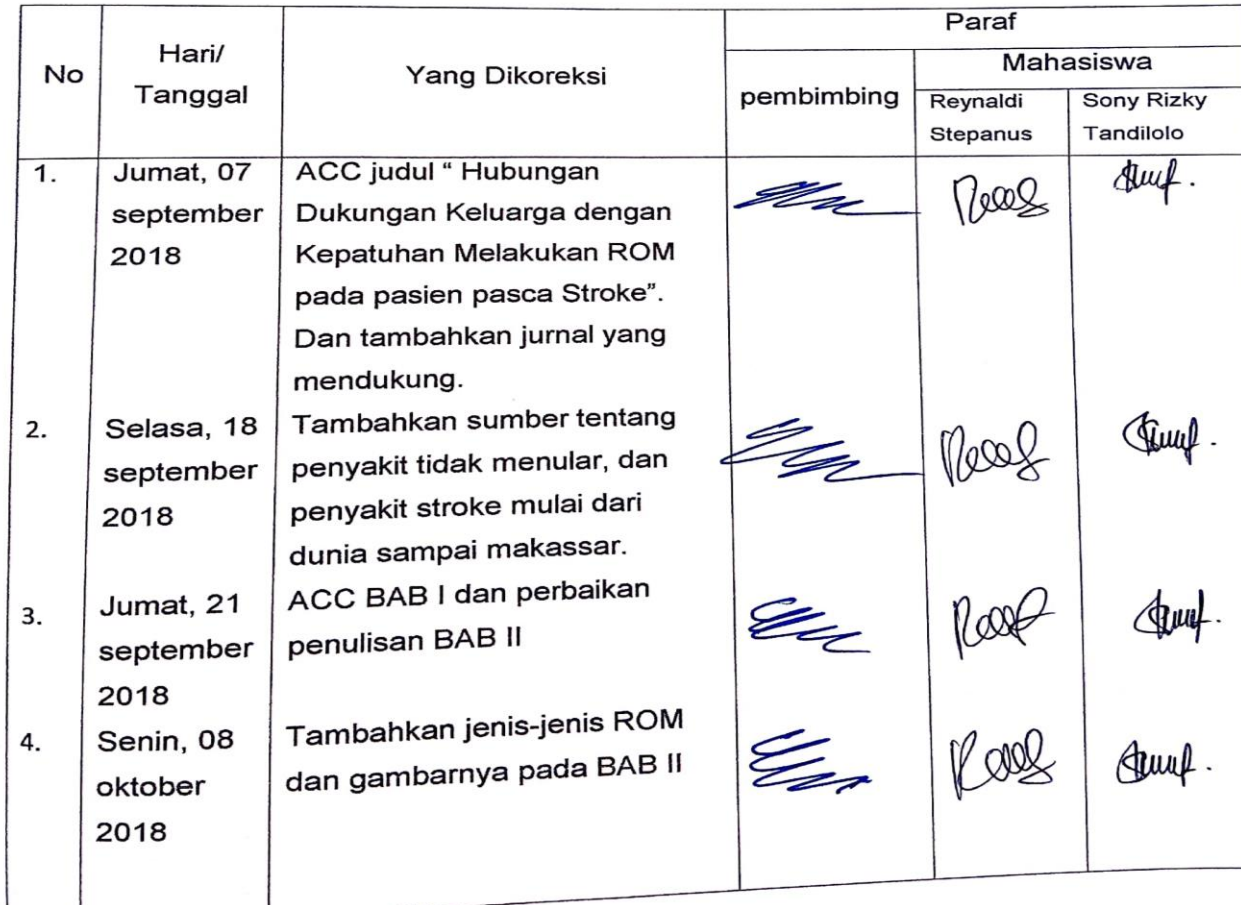 No
Hari/
Tanggal
Yang Dikoreksi
Paraf
pembimbing
Mahasiswa
Reynaldi
Stepanus
Sony Rizky
Tandilolo
1.
Jumat, 07
september
2018
ACC judul “ Hubungan
Dukungan Keluarga dengan
Kepatuhan Melakukan ROM
pada pasien pasca Stroke”.
Dan tambahkan jurnal yang
mendukung.
2.
Selasa, 18
september
2018
Tambahkan sumber tentang
penyakit tidak menular, dan
penyakit stroke mulai dari
dunia sampai makassar.
3.
Jumat, 21
september
2018
ACC BAB I dan perbaikan
penulisan BAB II
4.
Senin, 08
oktober
2018
Tambahkan jenis-jenis ROM
dan gambarnya pada BAB II